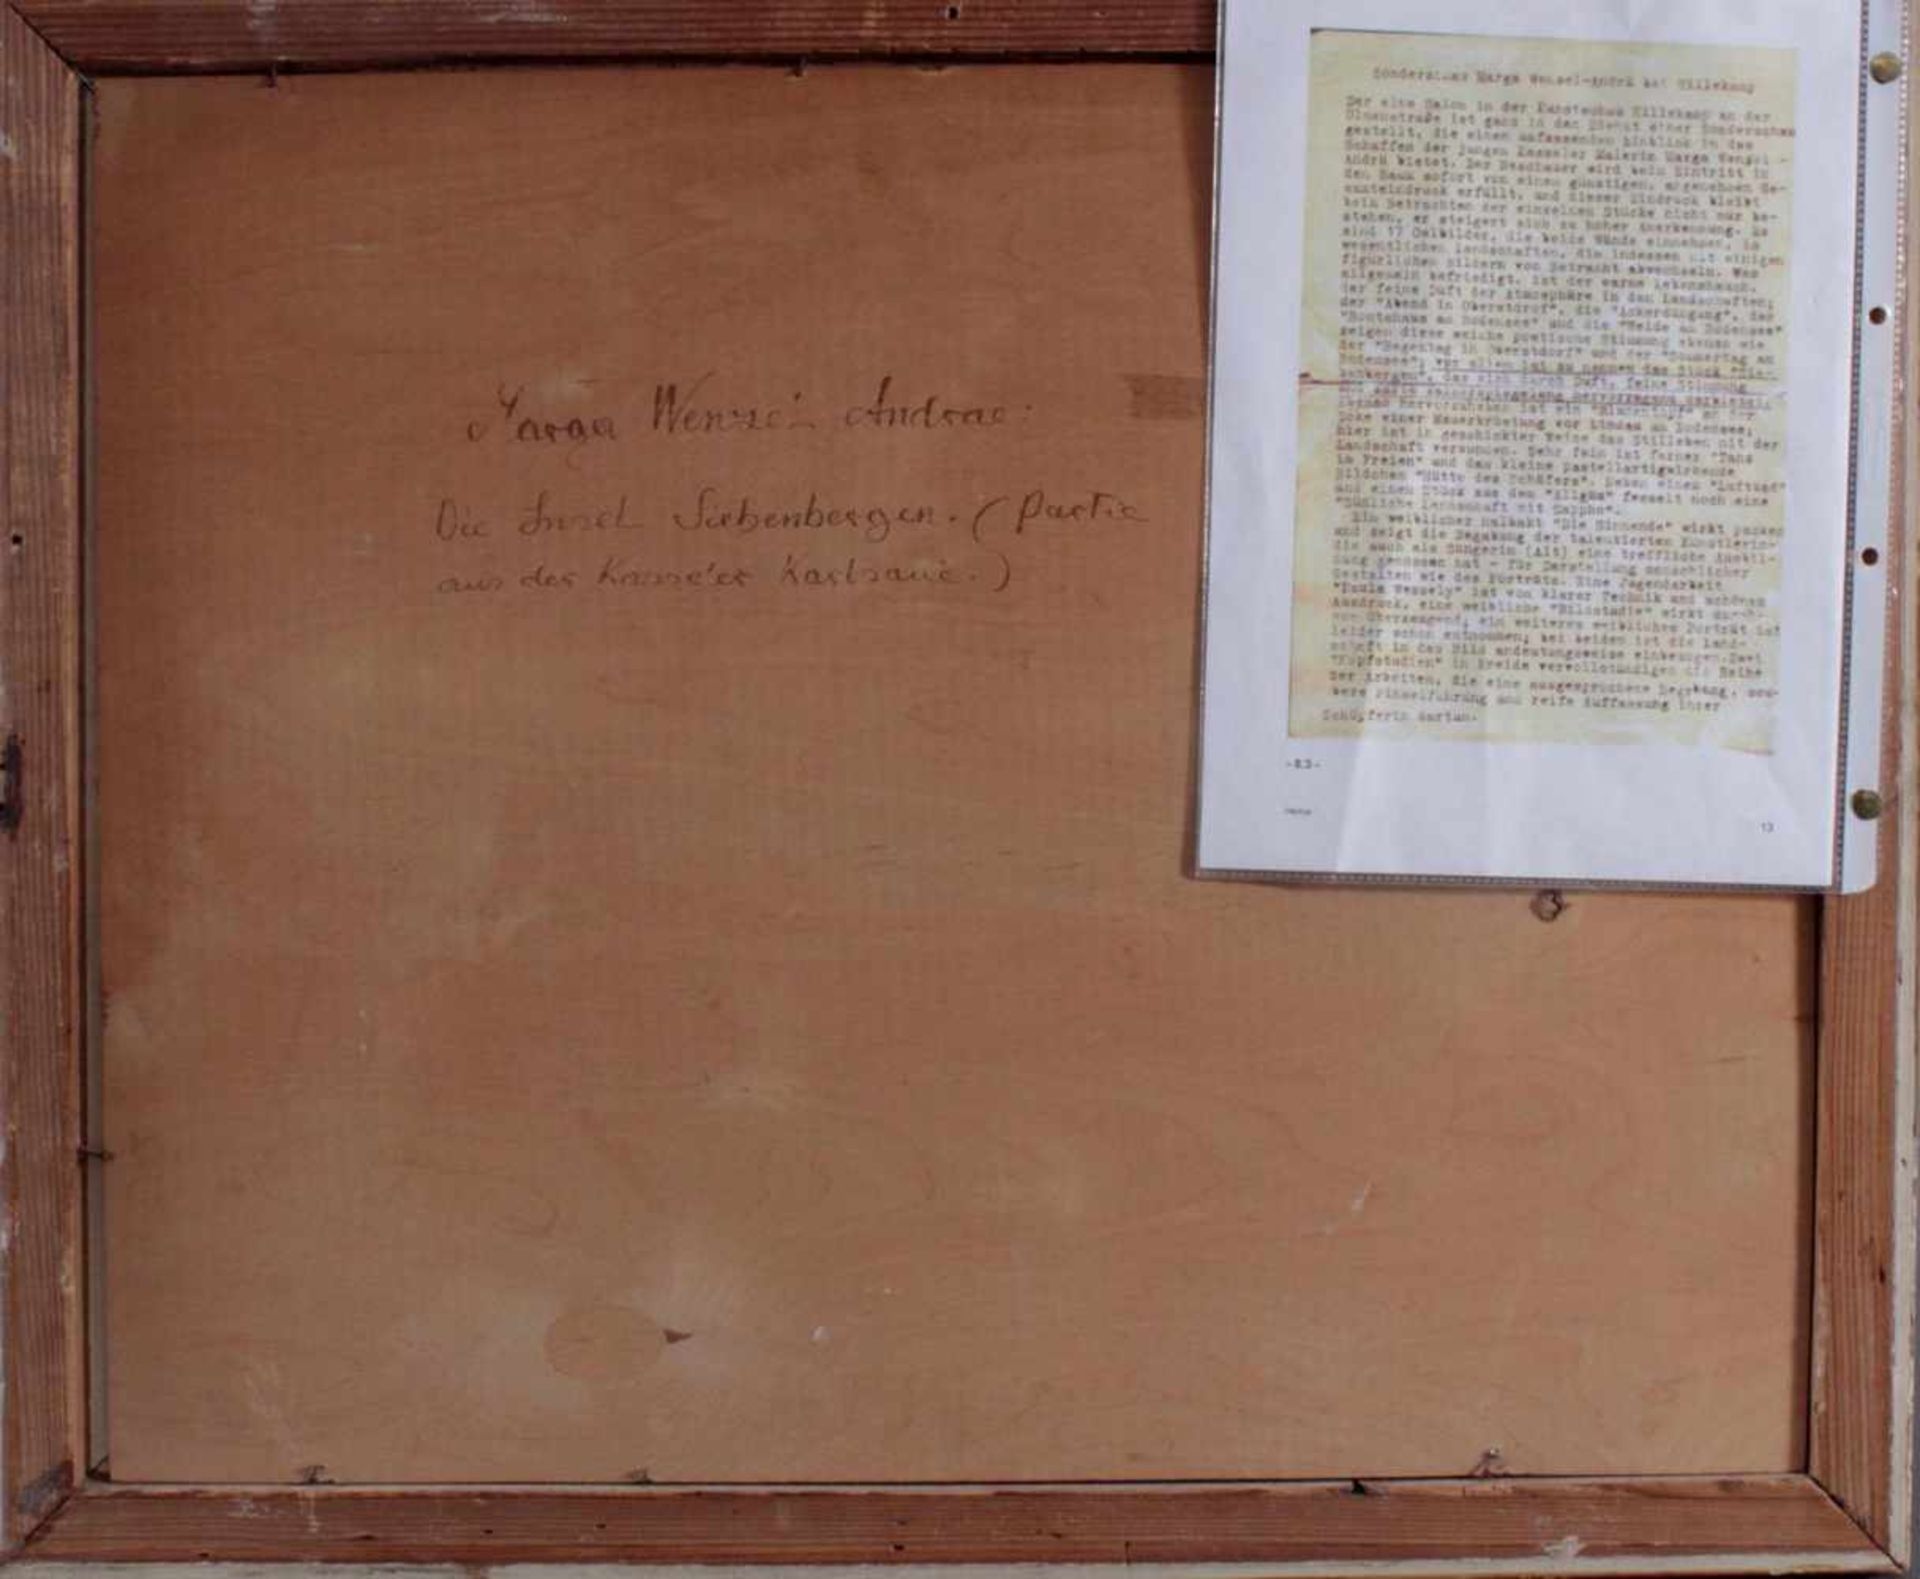 Marga Wenzel Andrae:
Die Insel Siebenbergen. (Partie
aus der Kasseler Karlsaue.)
Marga Wenzel-André bei Hillekamp
Der eine Salon in der Hillekamp an der
ist ganz in den Dienst einer Sonderschau
gestellt, die einen umfassenden Einblick in das
Schaffen der jungen Kasseler Malerin Marga Wenzel-
André bietet. Der Beschauer wird beim Eintritt in
den Raum sofort von einem günstigen, angenehmen Ge-
samteindruck erfüllt, und dieser Eindruck bleibt
beim Betrachten der einzelnen Stücke nicht nur be-
stehen, er steigert sich zu hoher Anerkennung. Es
sind 17 Oelbilder, die beide Wände einnehmen, im
wesentlichen Landschaften, die indessen mit einigen
figürlichen Bildern von Betracht abwechseln. Was
allgemein befriedigt, ist der warme Lebenshauch,
der feine Duft der Atmosphäre in den Landschaften;
der "Abend in Oberstdorf", die "Ackerdüngung", das
"Bootshaus am Bodensee" und die "Weide am Bodensee"
zeigen diese weiche poetische Stimmung ebenso wie
der "Regentag in Oberstdorf" und der "Sommertag am
Bodensee"; vor allem hat zu nennen das Stück "Sie-
benbergen", das sich durch Duft, feine Stimmung
und hervorragend auszeichnet.
Ebenso hervorzuheben ist ein an der
Ecke einer Mauerbrüstung vor Lindau am Bodensee;
hier ist in geschickter Weise das Stilleben mit der
Landschaft verbunden. Sehr fein ist ferner "Tanz
im Freien" und das kleine pastellartigwirkende
Bildchen "Hütte des Schäfers". Neben einem
und einem Stück aus dem "Allgäu" fesselt noch eine
"Südliche Landschaft mit Sappho".
Ein weiblicher Halbakt "Die Sinnende" wirkt packend
und zeigt die Begabung der talentierten Künstlerin-
die auch als Sängerin (Alt) eine treffliche Ausbil-
dung genossen hat - für Darstellung menschlicher
Gestalten wie des Porträts. Eine Jugendarbeit
"Paula Wessely" ist von klarer Technik und schönem
Ausdruck, eine weibliche "Bildstudie" wirkt
ein weiteres weibliches Porträt ist
leider schon entnommen; bei beiden ist die Land-
schaft in das Bild andeutungsweise einbezogen. Zwei
"Kopfstudien" in Kreide vervollständigen die Reihe
der Arbeiten, die eine ausgesprochene Begabung, sau-
bere Pinselführung und reife Auffassung ihrer
Schöpferin dartun.
- 8.3 -
13